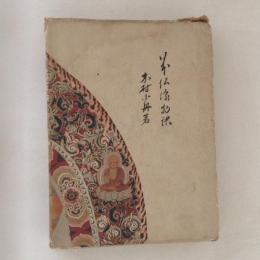 日本仏像物語
木村小舟著